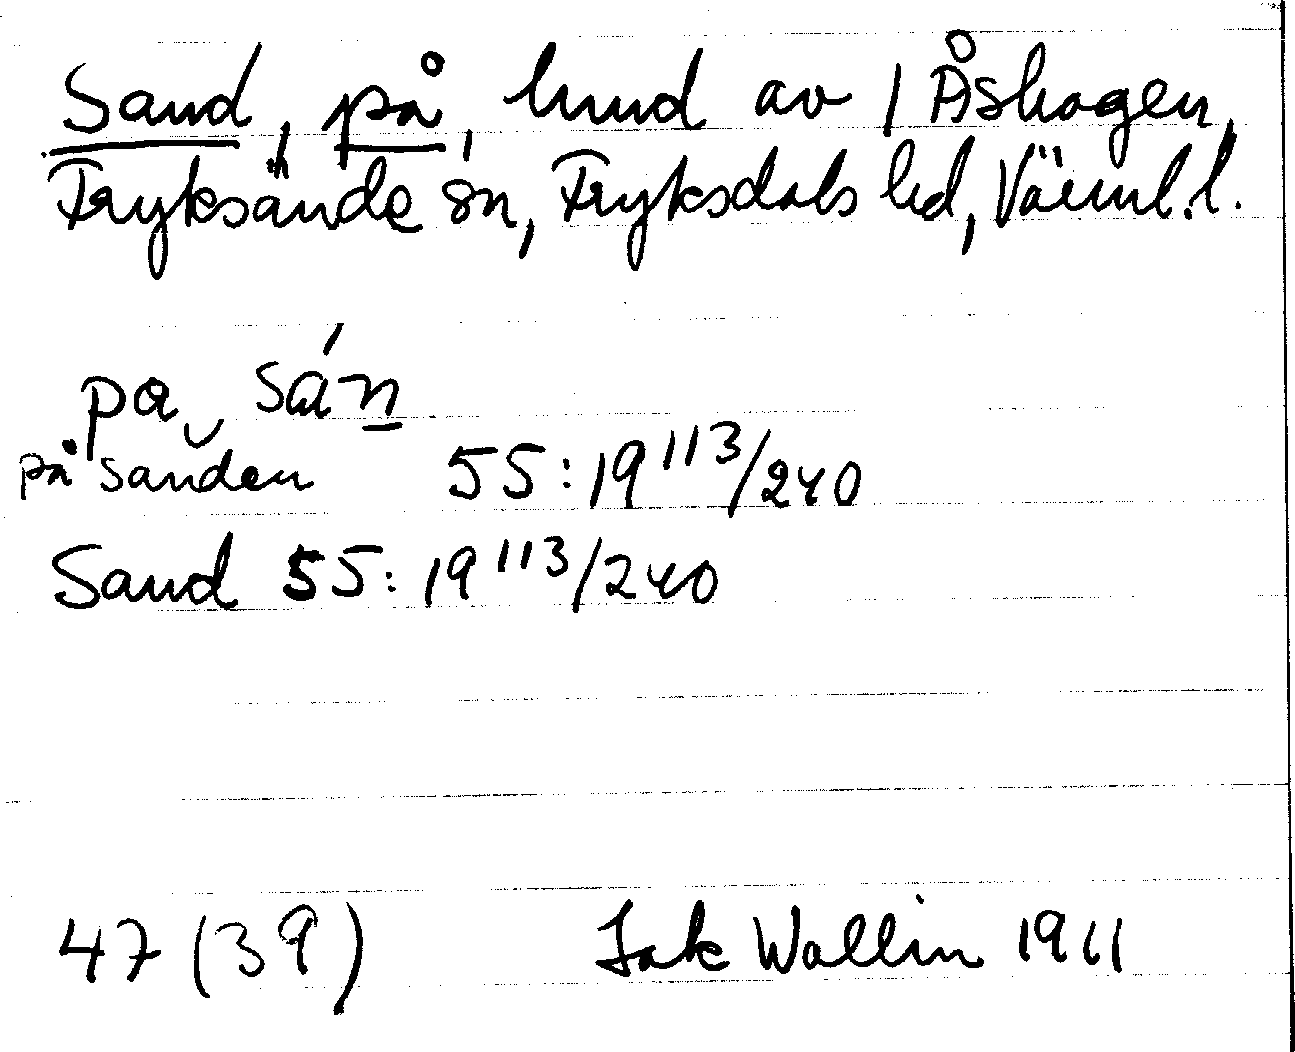 Sand, på, hmd av 1 Åshagen,
Fryksände sn, Fryksdals hd, Värml.l.
pa sán
på sanden 55:19 113/240
Sand 55:19 113/240
47 (39) Jak Wallin 1911